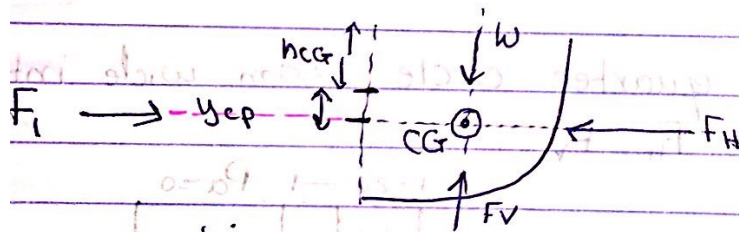 hCG
W
F1
ycp
CG
FH
FV